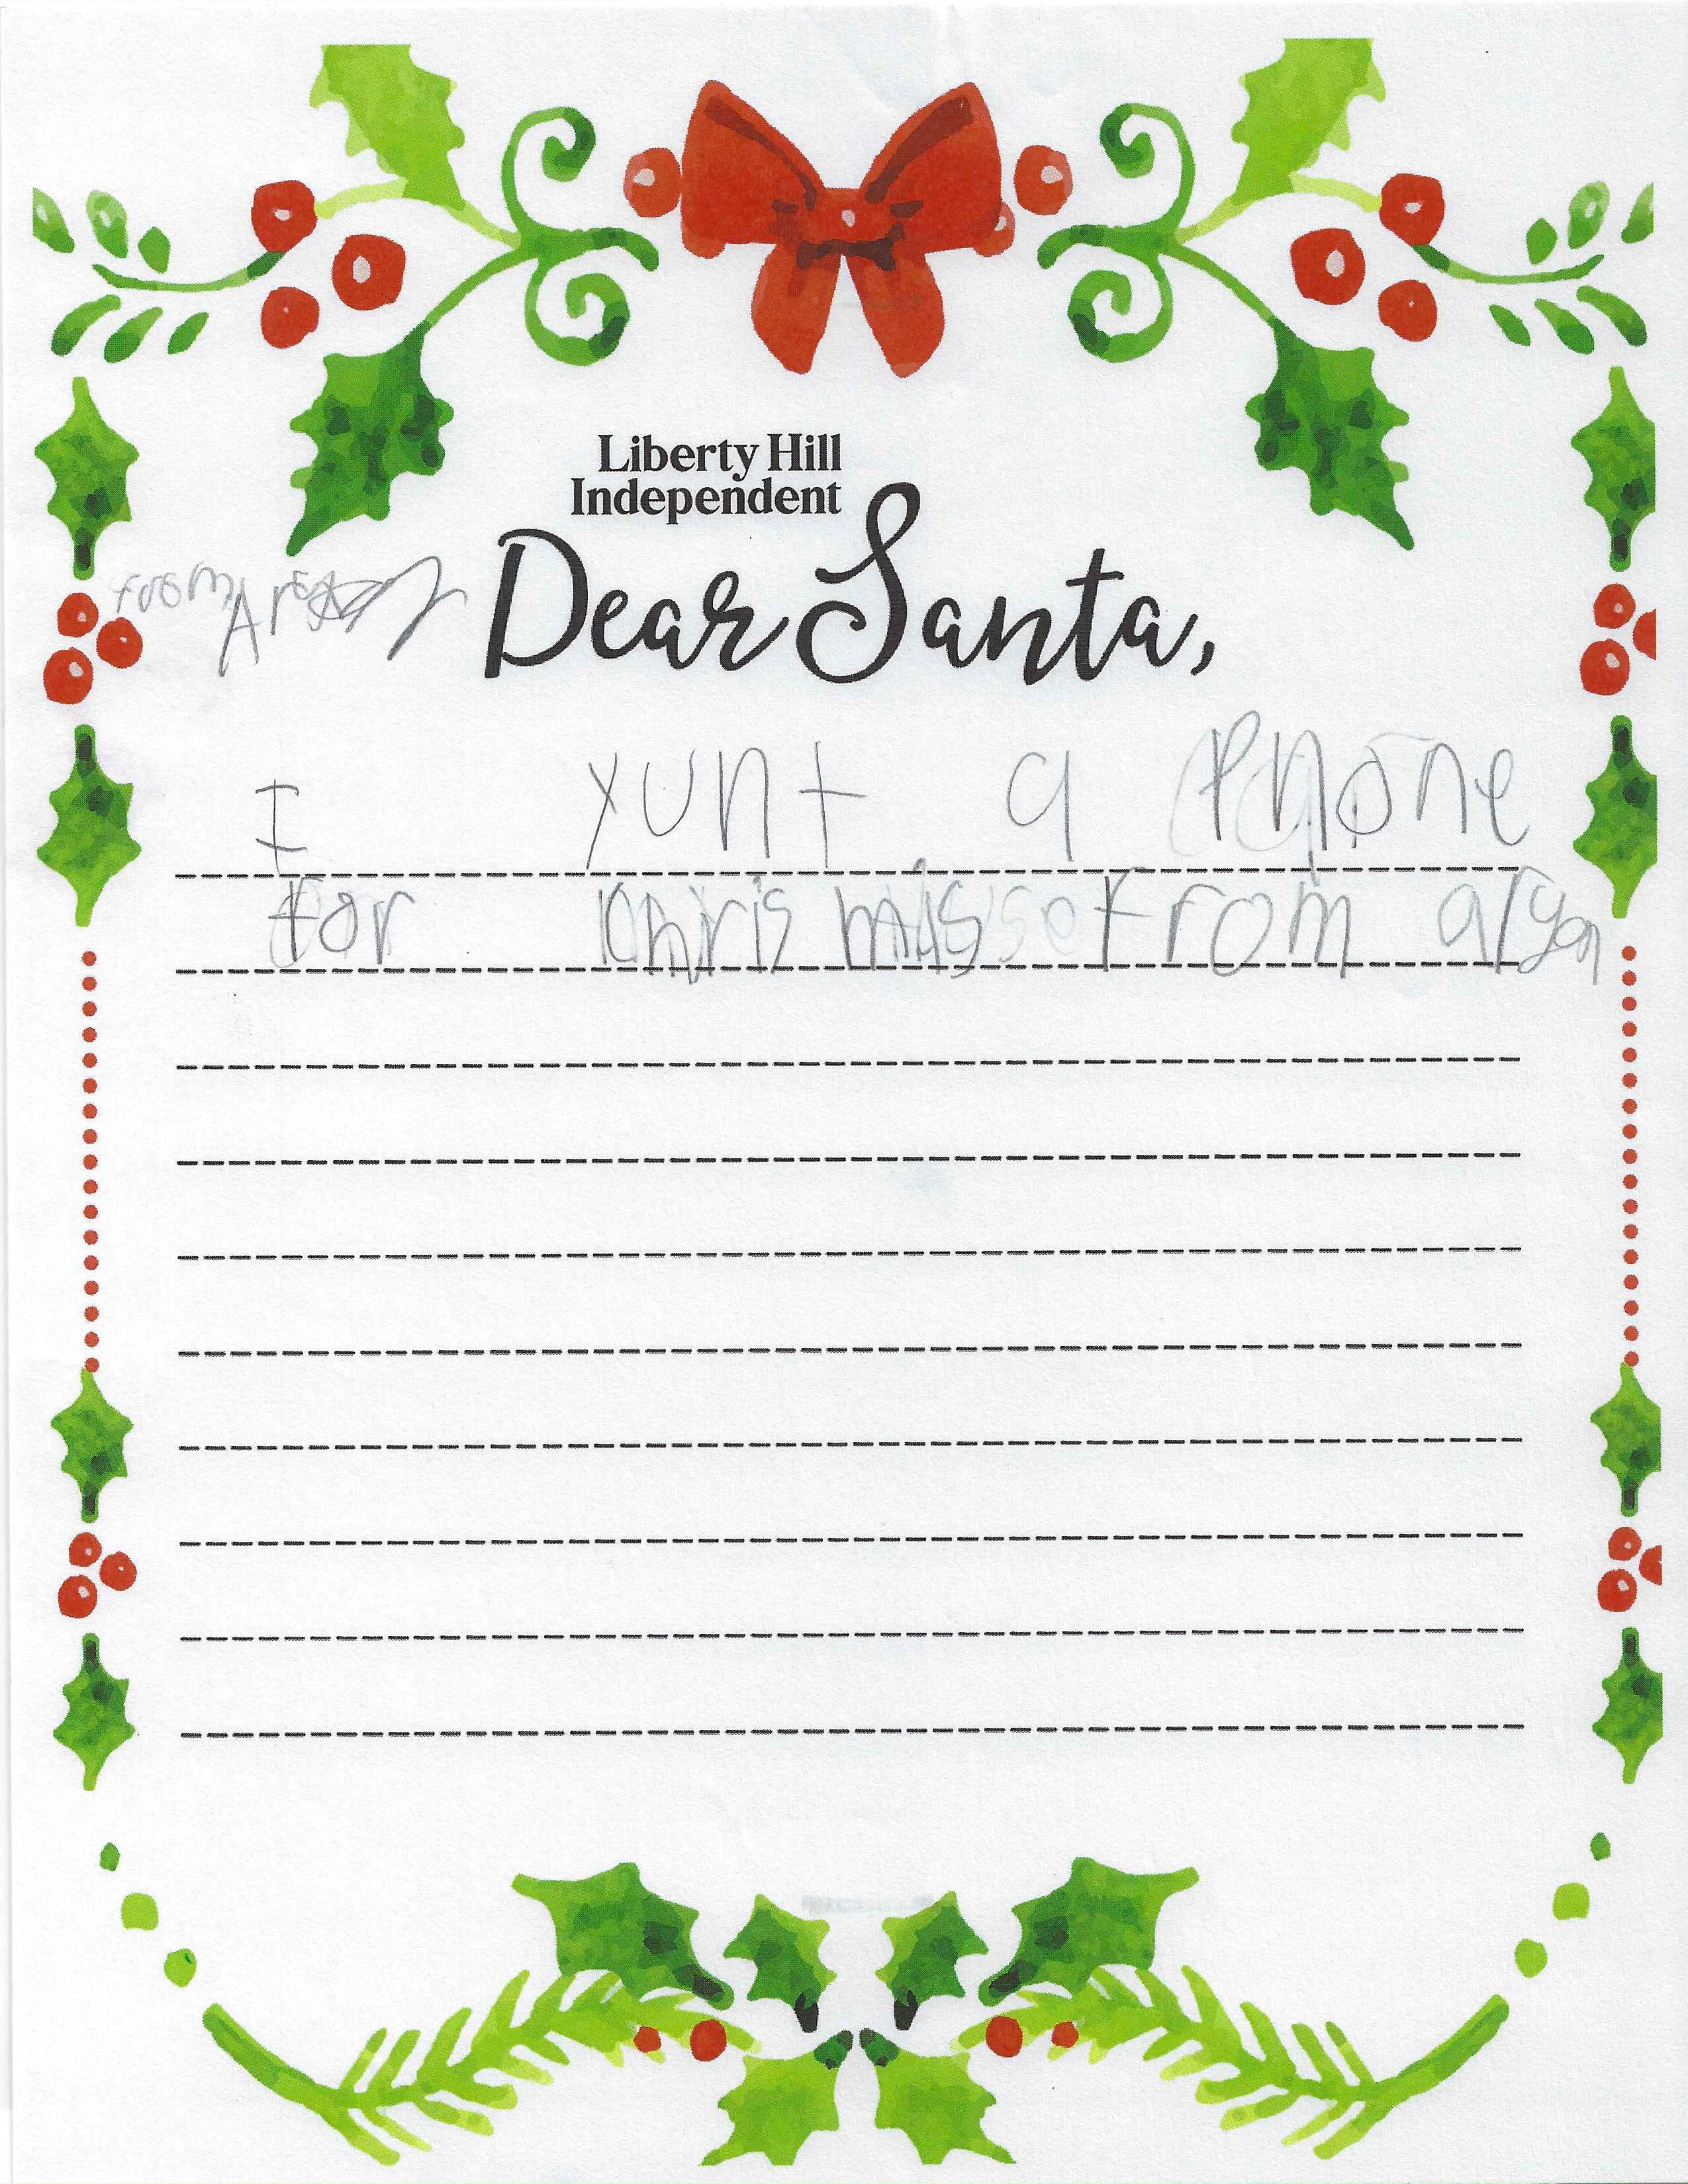 Liberty Hill
Independent
Dear Santa,
from
I yunt a Phone
for Chrismas from